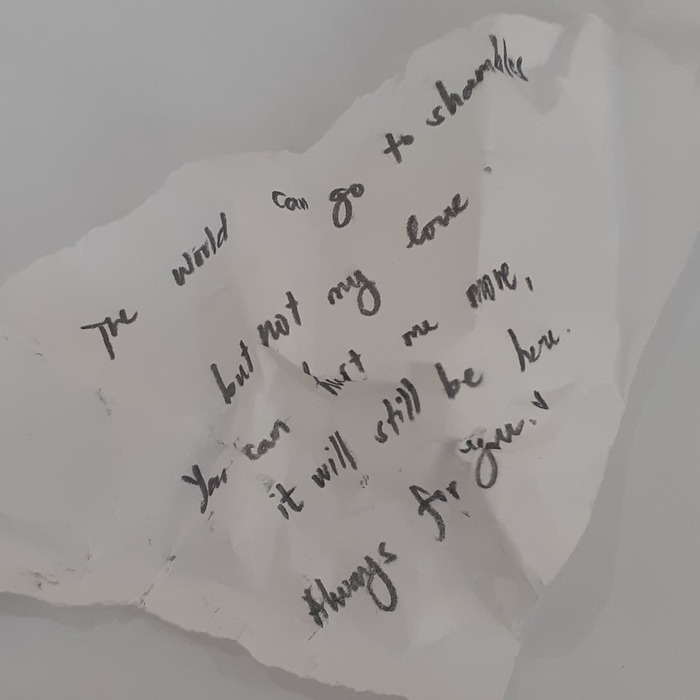 The world can go to shambles
but not my love.
You can hurt me more,
it will still be here.
Always for you.